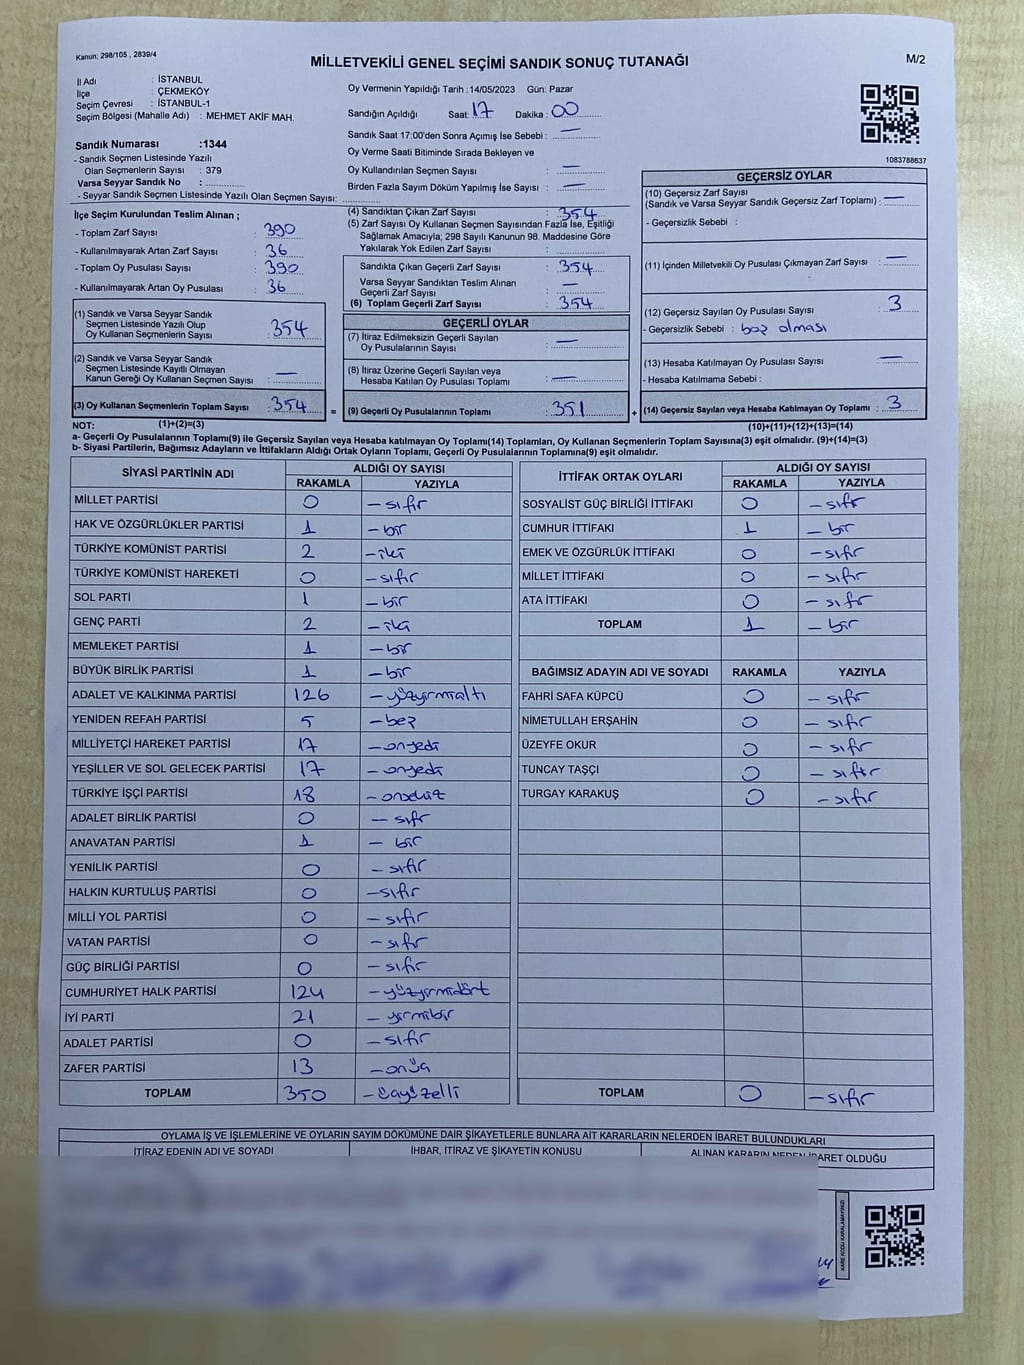 Kanun: 298/105 , 2839/4
MİLLETVEKİLİ GENEL SEÇİMİ SANDIK SONUÇ TUTANAĞI
M/2
İl Adı : İSTANBUL
İlçe : ÇEKMEKÖY
Seçim Çevresi : İSTANBUL-1
Seçim Bölgesi (Mahalle Adı) : MEHMET AKİF MAH.
Sandık Numarası :1344
- Sandık Seçmen Listesinde Yazılı
Olan Seçmenlerin Sayısı : 379
Varsa Seyyar Sandık No :
- Seyyar Sandık Seçmen Listesinde Yazılı Olan Seçmen Sayısı:
Oy Vermenin Yapıldığı Tarih :14/05/2023 Gün: Pazar
Sandığın Açıldığı Saat: 17 Dakika : 00
Sandık Saat 17:00'den Sonra Açımış İse Sebebi : —
Oy Verme Saati Bitiminde Sırada Bekleyen ve
Oy Kullandırılan Seçmen Sayısı : —
Birden Fazla Sayım Döküm Yapılmış İse Sayısı : —
1083788637
İlçe Seçim Kurulundan Teslim Alınan ;
- Toplam Zarf Sayısı : 390
- Kullanılmayarak Artan Zarf Sayısı : 36
- Toplam Oy Pusulası Sayısı : 390
- Kullanılmayarak Artan Oy Pusulası : 36
(1) Sandık ve Varsa Seyyar Sandık
Seçmen Listesinde Yazılı Olup
Oy Kullanan Seçmenlerin Sayısı : 354
(2) Sandık ve Varsa Seyyar Sandık
Seçmen Listesinde Kayıtlı Olmayan
Kanun Gereği Oy Kullanan Seçmen Sayısı : —
(3) Oy Kullanan Seçmenlerin Toplam Sayısı : 354
(4) Sandıktan Çıkan Zarf Sayısı : 354
(5) Zarf Sayısı Oy Kullanan Seçmen Sayısından Fazla İse, Eşitliği
Sağlamak Amacıyla; 298 Sayılı Kanunun 98. Maddesine Göre
Yakılarak Yok Edilen Zarf Sayısı :
Sandıkta Çıkan Geçerli Zarf Sayısı : 354
Varsa Seyyar Sandıktan Teslim Alınan
Geçerli Zarf Sayısı : —
(6) Toplam Geçerli Zarf Sayısı : 354
GEÇERLİ OYLAR
(7) İtiraz Edilmeksizin Geçerli Sayılan
Oy Pusulalarının Sayısı : —
(8) İtiraz Üzerine Geçerli Sayılan veya
Hesaba Katılan Oy Pusulası Toplamı : —
= (9) Geçerli Oy Pusulalarının Toplamı : 351
GEÇERSİZ OYLAR
(10) Geçersiz Zarf Sayısı
(Sandık ve Varsa Seyyar Sandık Geçersiz Zarf Toplamı) : —
- Geçersizlik Sebebi :
(11) İçinden Milletvekili Oy Pusulası Çıkmayan Zarf Sayısı : —
(12) Geçersiz Sayılan Oy Pusulası Sayısı : 3
- Geçersizlik Sebebi : boş olması
(13) Hesaba Katılmayan Oy Pusulası Sayısı : —
- Hesaba Katılmama Sebebi :
+ (14) Geçersiz Sayılan veya Hesaba Katılmayan Oy Toplamı : 3
NOT: (1)+(2)=(3)
(10)+(11)+(12)+(13)=(14)
a- Geçerli Oy Pusulalarının Toplamı(9) ile Geçersiz Sayılan veya Hesaba katılmayan Oy Toplamı(14) Toplamları, Oy Kullanan Seçmenlerin Toplam Sayısına(3) eşit olmalıdır. (9)+(14)=(3)
b- Siyasi Partilerin, Bağımsız Adayların ve İttifakların Aldığı Ortak Oyların Toplamı, Geçerli Oy Pusulalarının Toplamına(9) eşit olmalıdır.
SİYASİ PARTİNİN ADI ALDIĞI OY SAYISI
RAKAMLA YAZIYLA
MİLLET PARTİSİ 0 – sıfır
HAK VE ÖZGÜRLÜKLER PARTİSİ 1 – bir
TÜRKİYE KOMÜNİST PARTİSİ 2 – iki
TÜRKİYE KOMÜNİST HAREKETİ 0 – sıfır
SOL PARTİ 1 – bir
GENÇ PARTİ 2 – iki
MEMLEKET PARTİSİ 1 – bir
BÜYÜK BİRLİK PARTİSİ 1 – bir
ADALET VE KALKINMA PARTİSİ 126 – yüzyirmialtı
YENİDEN REFAH PARTİSİ 5 – beş
MİLLİYETÇİ HAREKET PARTİSİ 17 – onyedi
YEŞİLLER VE SOL GELECEK PARTİSİ 17 – onyedi
TÜRKİYE İŞÇİ PARTİSİ 18 – onsekiz
ADALET BİRLİK PARTİSİ 0 – sıfır
ANAVATAN PARTİSİ 1 – bir
YENİLİK PARTİSİ 0 – sıfır
HALKIN KURTULUŞ PARTİSİ 0 – sıfır
MİLLİ YOL PARTİSİ 0 – sıfır
VATAN PARTİSİ 0 – sıfır
GÜÇ BİRLİĞİ PARTİSİ 0 – sıfır
CUMHURİYET HALK PARTİSİ 124 – yüzyirmidört
İYİ PARTİ 21 – yirmibir
ADALET PARTİSİ 0 – sıfır
ZAFER PARTİSİ 13 – onüç
TOPLAM 350 – üçyüzelli
İTTİFAK ORTAK OYLARI ALDIĞI OY SAYISI
RAKAMLA YAZIYLA
SOSYALİST GÜÇ BİRLİĞİ İTTİFAKI 0 – sıfır
CUMHUR İTTİFAKI 1 – bir
EMEK VE ÖZGÜRLÜK İTTİFAKI 0 – sıfır
MİLLET İTTİFAKI 0 – sıfır
ATA İTTİFAKI 0 – sıfır
TOPLAM 1 – bir
BAĞIMSIZ ADAYIN ADI VE SOYADI RAKAMLA YAZIYLA
FAHRİ SAFA KÜPCÜ 0 – sıfır
NİMETULLAH ERŞAHİN 0 – sıfır
ÜZEYFE OKUR 0 – sıfır
TUNCAY TAŞÇI 0 – sıfır
TURGAY KARAKUŞ 0 – sıfır
TOPLAM 0 – sıfır
OYLAMA İŞ VE İŞLEMLERİNE VE OYLARIN SAYIM DÖKÜMÜNE DAİR ŞİKAYETLERLE BUNLARA AİT KARARLARIN NELERDEN İBARET BULUNDUKLARI
İTİRAZ EDENİN ADI VE SOYADI İHBAR, İTİRAZ VE ŞİKAYETİN KONUSU ALINAN KARARIN NEDEN İBARET OLDUĞU
KARE KODU KARALAMAYINIZ!